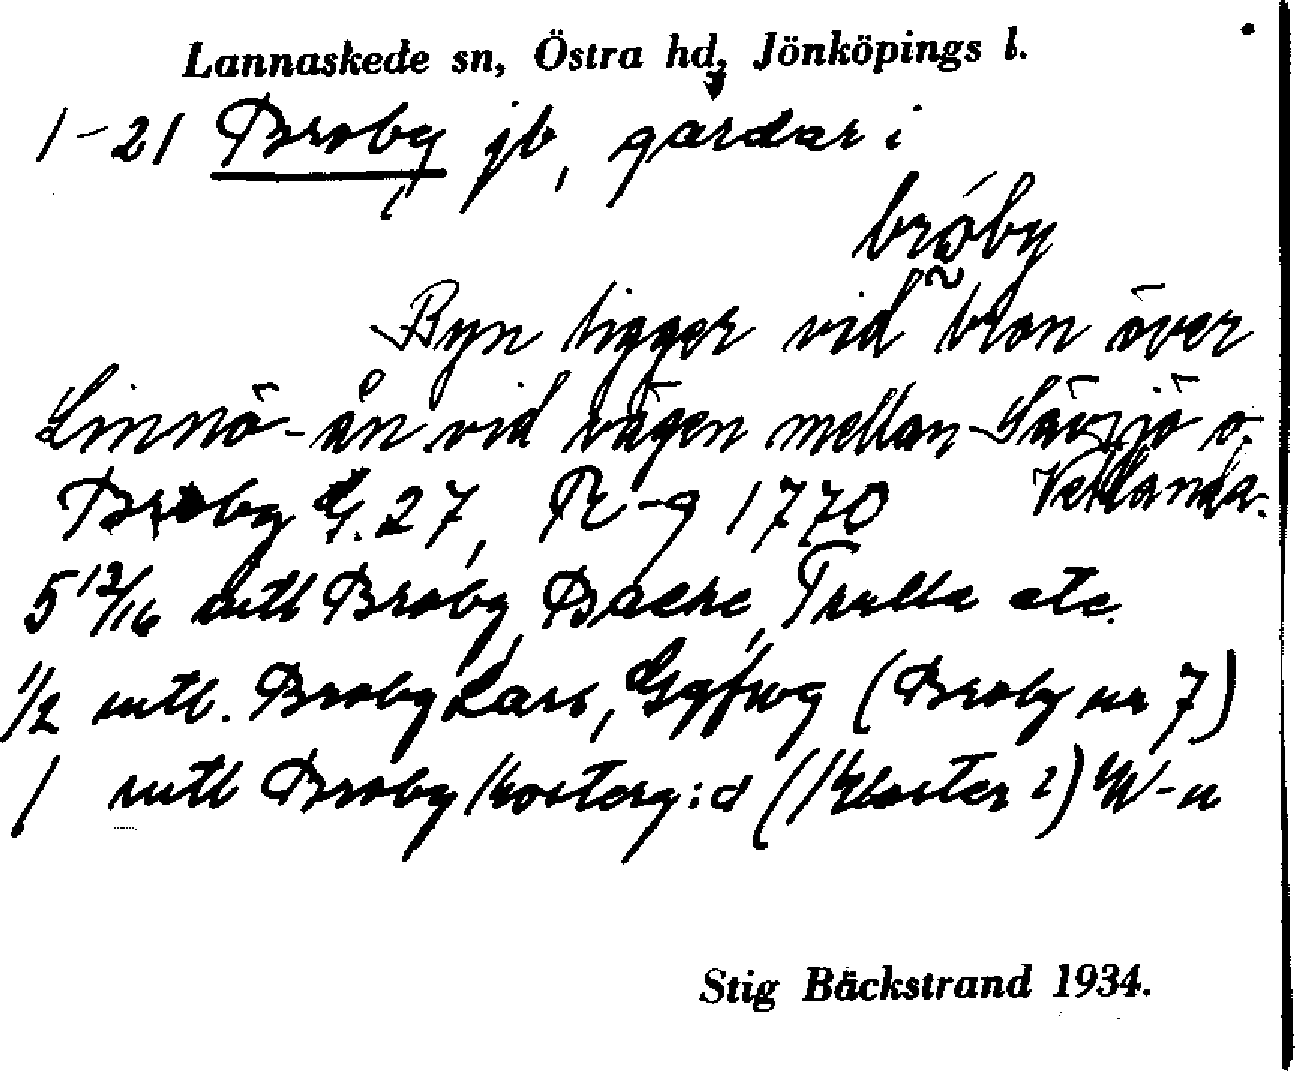 Lannaskede sn, Östra hd, Jönköpings l.
1-21 Broby jb, gårdar i
bró̰by
Byn ligger vid bron över
Linnö-ån vid vägen mellan Sävsjö o.
Vetlanda.
Broby G. 27, 1770
5 13/16 mtl Broby, Backe, Trulle etc.
1/2 mtl. Broby Lars, (Broby nr 7)
1 mtl Broby (Kloster 2)
Stig Bäckstrand 1934.